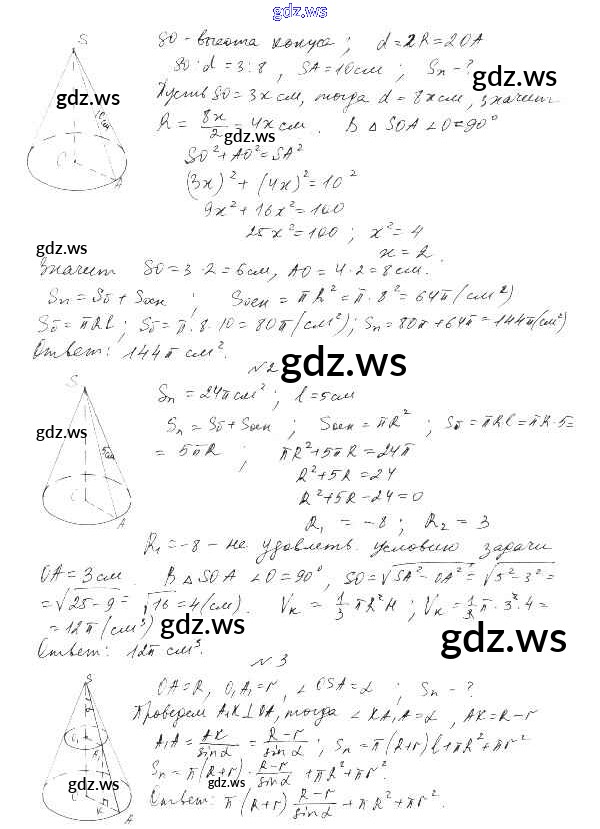 gdz.ws
SO - высота конуса; d = 2R = 2OA
SO : d = 3 : 8, SA = 10 см; Sп - ?
gdz.ws
Пусть SO = 3x см, тогда d = 8x см, значит
R = 8x/2 = 4x см. В △SOA ∠O = 90°
gdz.ws
SO² + AO² = SA²
(3x)² + (4x)² = 10²
9x² + 16x² = 100
25x² = 100; x² = 4
gdz.ws
x = 2.
Значит SO = 3·2 = 6 см, AO = 4·2 = 8 см.
Sп = Sб + Sосн; Sосн = πR² = π·8² = 64π (см²)
Sб = πRl; Sб = π·8·10 = 80π (см²); Sп = 80π + 64π = 144π (см²)
Ответ: 144π см².
№2
gdz.ws
Sп = 24π см²; l = 5 см
gdz.ws
Sп = Sб + Sосн; Sосн = πR²; Sб = πRl = πR·5 =
= 5πR; πR² + 5πR = 24π
R² + 5R = 24
R² + 5R - 24 = 0
R₁ = -8; R₂ = 3
R₁ = -8 - не удовлетв. условию задачи
OA = 3 см. В △SOA ∠O = 90°, SO = √SA² - OA² = √5² - 3² =
= √25 - 9 = √16 = 4 (см). Vк = 1/3 πR²H; Vк = 1/3 π·3²·4 =
= 12π (см³)
gdz.ws
gdz.ws
Ответ: 12π см³.
№3
OA = R, O₁A₁ = r, ∠OSA = α; Sп - ?
Проведем A₁K⊥OA, тогда ∠KA₁A = α, AK = R - r
A₁A = AK/sinα = R-r/sinα; Sп = π(R+r)l + πR² + πr²
Sп = π(R+r)·R-r/sinα + πR² + πr²
gdz.ws
gdz.ws
gdz.ws
Ответ: π(R+r) R-r/sinα + πR² + πr².
S
10 см
O
A
S
5 см
O
A
S
O₁
A₁
O
K
A